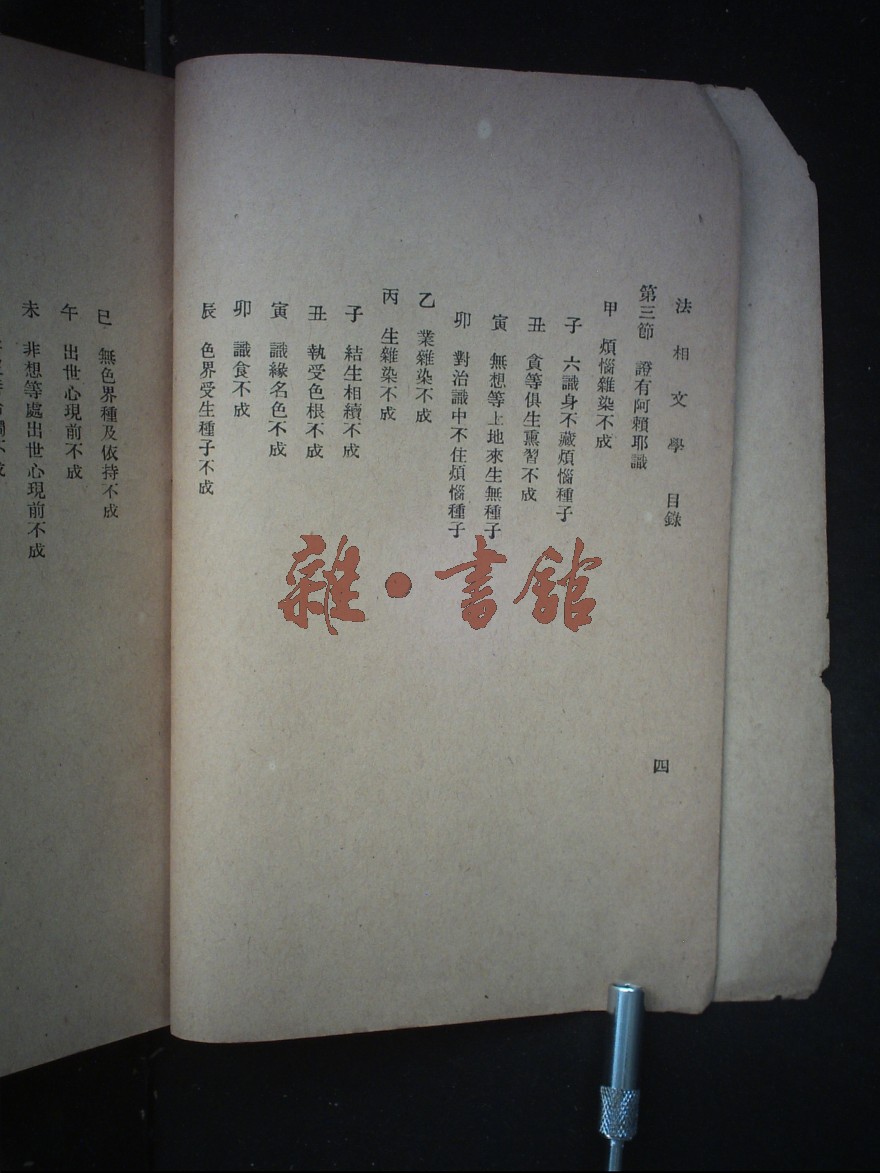 法相文學 目錄
四
第三節 證有阿賴耶識
甲 煩惱雜染不成
子 六識身不藏煩惱種子
丑 貪等俱生熏習不成
寅 無想等上地來生無種子
卯 對治識中不住煩惱種子
乙 業雜染不成
丙 生雜染不成
子 結生相續不成
丑 執受色根不成
寅 識緣名色不成
卯 識食不成
辰 色界受生種子不成
巳 無色界種及依持不成
午 出世心現前不成
未 非想等處出世心現前不成
雜·書館